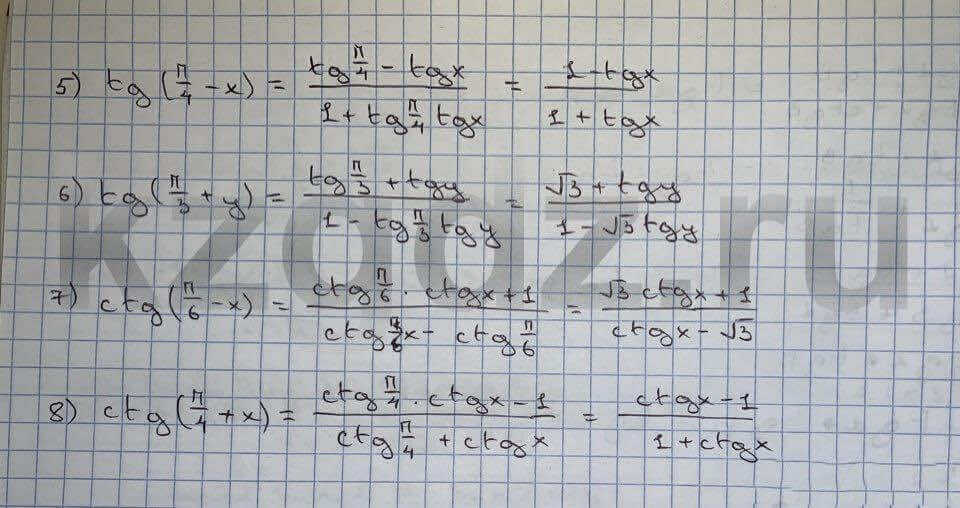 5) tg(π/4 - x) = (tg π/4 - tgx)/(1 + tg π/4 tgx) = (1 - tgx)/(1 + tgx)
6) tg(π/3 + y) = (tg π/3 + tgy)/(1 - tg π/3 tgy) = (√3 + tgy)/(1 - √3 tgy)
7) ctg(π/6 - x) = (ctg π/6 · ctgx + 1)/(ctg x - ctg π/6) = (√3 ctgx + 1)/(ctgx - √3)
8) ctg(π/4 + x) = (ctg π/4 · ctgx - 1)/(ctg π/4 + ctgx) = (ctgx - 1)/(1 + ctgx)
kzgdz.ru